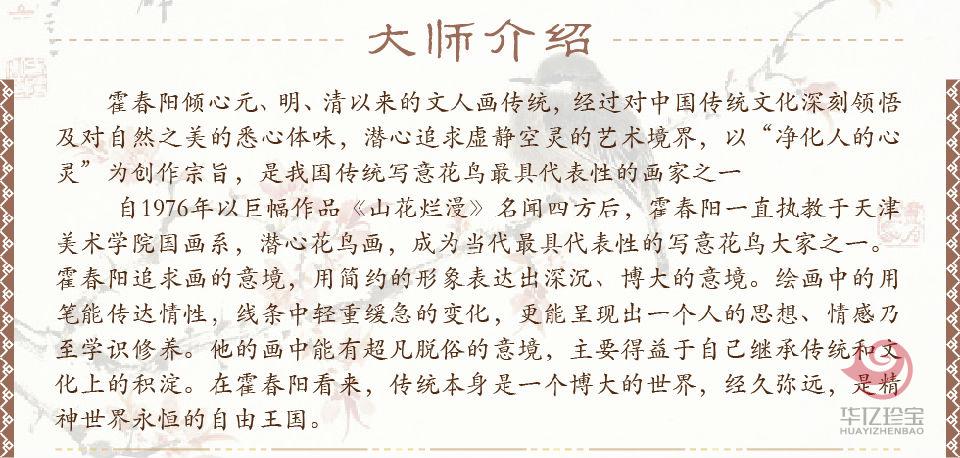 大师介绍
霍春阳倾心元、明、清以来的文人画传统，经过对中国传统文化深刻领悟
及对自然之美的悉心体味，潜心追求虚静空灵的艺术境界，以“净化人的心
灵”为创作宗旨，是我国传统写意花鸟最具代表性的画家之一
自1976年以巨幅作品《山花烂漫》名闻四方后，霍春阳一直执教于天津
美术学院国画系，潜心花鸟画，成为当代最具代表性的写意花鸟大家之一。
霍春阳追求画的意境，用简约的形象表达出深沉、博大的意境。绘画中的用
笔能传达情性，线条中轻重缓急的变化，更能呈现出一个人的思想、情感乃
至学识修养。他的画中能有超凡脱俗的意境，主要得益于自己继承传统和文
化上的积淀。在霍春阳看来，传统本身是一个博大的世界，经久弥远，是精
神世界永恒的自由王国。
华亿珍宝
HUAYIZHENBAO